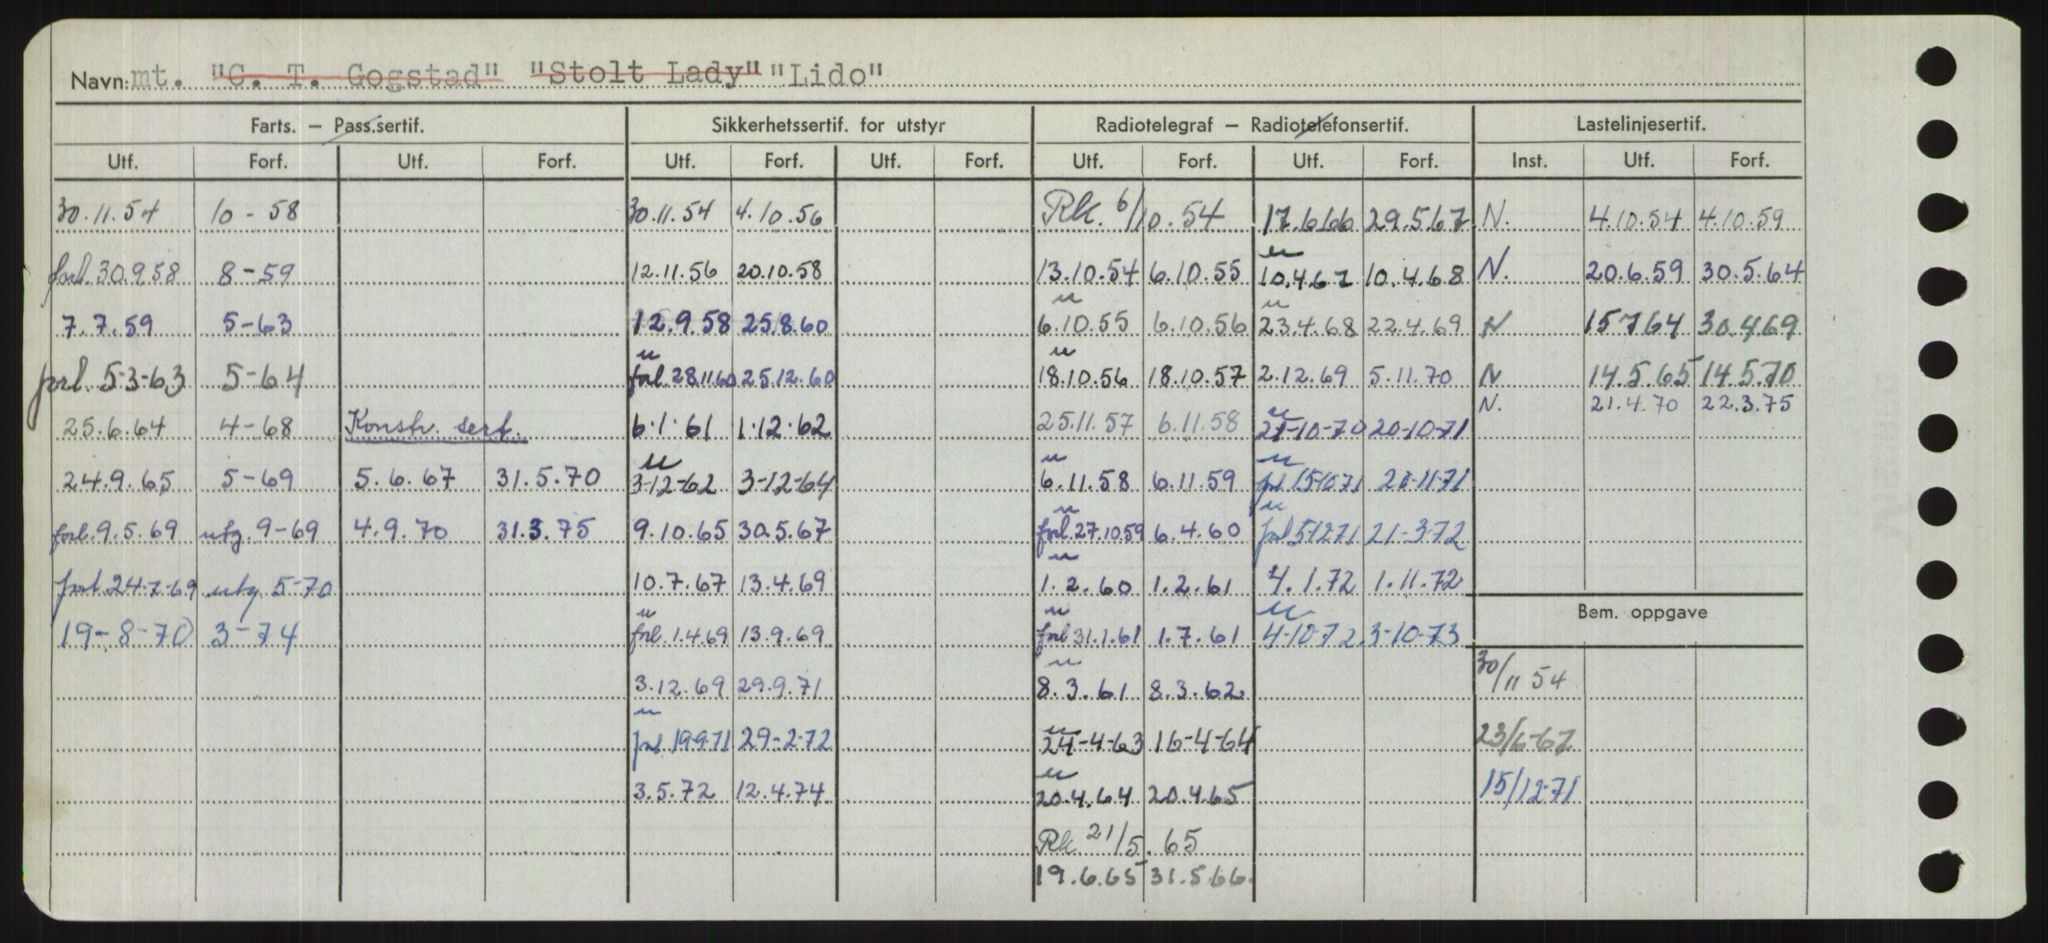 Navn: mt. "C. T. Gogstad" "Stolt Lady" "Lido"
Farts. — Pass.sertif. Sikkerhetssertif. for utstyr Radiotelegraf — Radiotelefonsertif. Lastelinjesertif.
Utf. Forf. Utf. Forf. Utf. Forf. Utf. Forf. Utf. Forf. Utf. Forf. Inst. Utf. Forf.
30.11.54 10-58 30.11.54 4.10.56 Rk. 6/10.54 17.6.66 29.5.67 N. 4.10.54 4.10.59
forl. 30.9.58 8-59 12.11.56 20.10.58 13.10.54 6.10.55 u 10.4.67 10.4.68 N. 20.6.59 30.5.64
7.7.59 5-63 12.9.58 25.8.60 u 6.10.55 6.10.56 u 23.4.68 22.4.69 N 15.7.64 30.4.69
forl. 5-3-63 5-64 u forl. 28.11.60 25.12.60 u 18.10.56 18.10.57 2.12.69 5.11.70 N 14.5.65 14.5.70
N. 21.4.70 22.3.75
25.6.64 4-68 Konstr. sert. 6.1.61 1.12.62 25.11.57 6.11.58 u 21-10-70 20-10-71
24.9.65 5-69 5.6.67 31.5.70 u 3-12-62 3-12-64 u 6.11.58 6.11.59 u forl 15-10-71 20-11-71
forl. 9.5.69 utg. 9-69 4.9.70 31.3.75 9.10.65 30.5.67 u forl. 27.10.59 6.4.60 u forl 5-12-71 21-3-72
forl. 24-7-69 utg. 5-70 10.7.67 13.4.69 u 1.2.60 1.2.61 4.1.72 1.11.72
Bem. oppgave
19-8-70 3-74 u forl. 1.4.69 13.9.69 u forl 31.1.61 1.7.61 u 4-10-72 3-10-73
3.12.69 29.9.71 u 8.3.61 8.3.62 30/11 54
u forl 19-9-71 29-2-72 u 24-4-63 16-4-64 23/6-67
3.5.72 12.4.74 u 20.4.64 20.4.65 15/12-71
Rk 21/5.65
19.6.65 31.5.66.